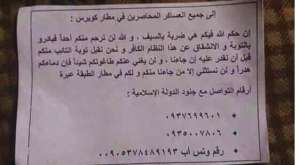 إلى جميع العساكر المحاصرين في مطار كويرس :
إن حكم الله فيكم هي ضربة بالسيف ، و الله لن نرحم منكم أحداً فبادرو
بالتوبة و الانشقاق عن هذا النظام الكافر و نحن نقبل توبة التائب منكم
قبل أن نقدر عليه إن جاءنا ، و لن يغني عنكم طاغوتكم شيئاً فإن دماءكم
هدراً و لن نستثني إلا من جاءنا منكم و لكم في مطار الطبقة عبرة
أرقام التواصل مع جنود الدولة الإسلامية :
٠٩٣٧٦٩٩٦٠١
٠٩٣٥٠٠٧٨٠٦
رقم وتس أب ٠٠٩٠٥٣٧٨٤٨٩١٩٣